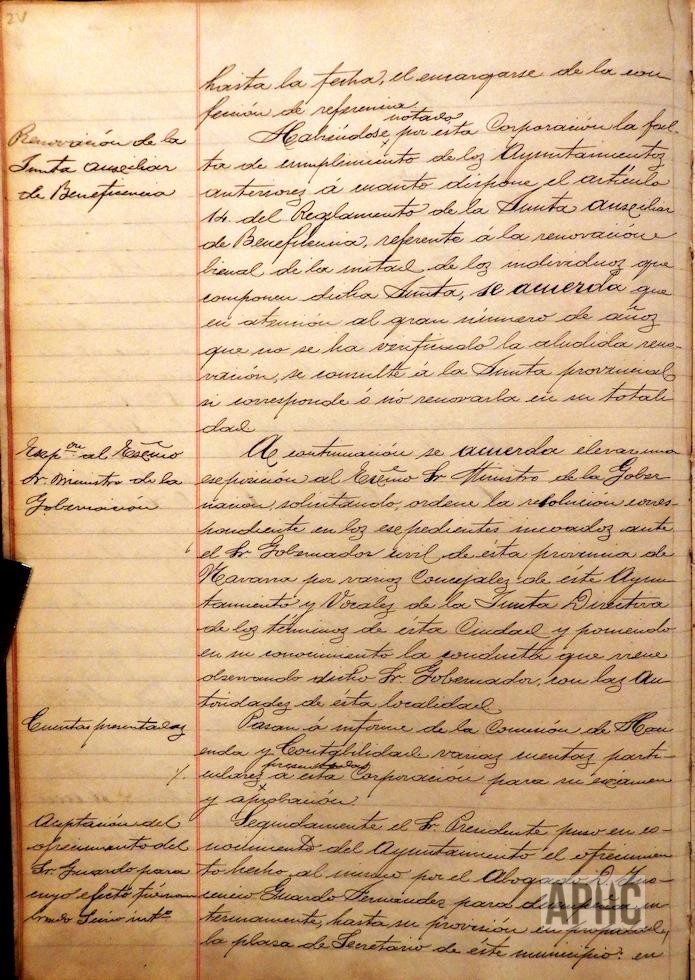 2V
hasta la fecha, el encargarse de la con-
fección de referencia
Renovación de la
Junta auseiliar
de Beneficencia
Habiéndose notado por esta Corporación la fal-
ta de cumplimiento de los Ayuntamientos
anteriores a cuanto dispone el artículo
14 del Reglamento de la Junta auseiliar
de Beneficencia, referente á la renovación
bienal de la mitad de los individuos que
componen dicha Junta, se acuerda que
en atención al gran número de años
que no se ha verificado la aludida reno-
vación, se consulte á la Junta provincial
si corresponde ó no renovarla en su totali-
dad
Esepon al Esemo
Sr. Ministro de la
Gobernación
A continuación se acuerda elevar una
eseposición al Esemo Sr. Ministro de la Gober-
nación, solicitando, ordene la resolución corres-
pondiente en los esepedientes incoados ante
el Sr. Gobernador civil de ésta provincia de
Navarra por varios Concejales de éste Ayun-
tamiento y Vocales de la Junta Directiva
de los términos de ésta Ciudad y poniendo
en su conocimiento la conducta que viene
observando dicho Sr. Gobernador, con las Au-
toridades de ésta localidad
Cuentas presentadas
Pasan á informe de la Comisión de Haci-
enda y Contabilidad varias cuentas parti-
culares presentadas a esta Corporación para su exámen
y aprobación.
Aceptación del
ofrecimiento del
Sr. Guardo para
cuyo efecto
Srio intº
Seguidamente el Sr. Presidente puso en co-
nocimiento del Ayuntamiento el ofrecimien-
to hecho al mismo por el Abogado D.
Guardo Fernandez para desempeñar in-
terinamente, hasta su provisión en propiedad,
la plaza de Secretario de éste municipio: en
APHC